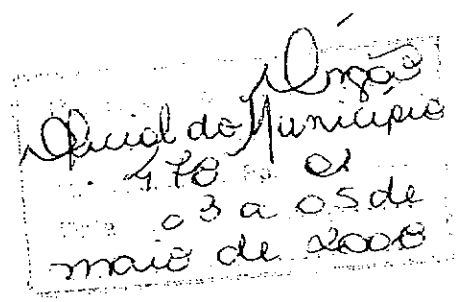 Orgão
Oficial do Município
478 Pg. 01
03 a 05 de
maio de 2008